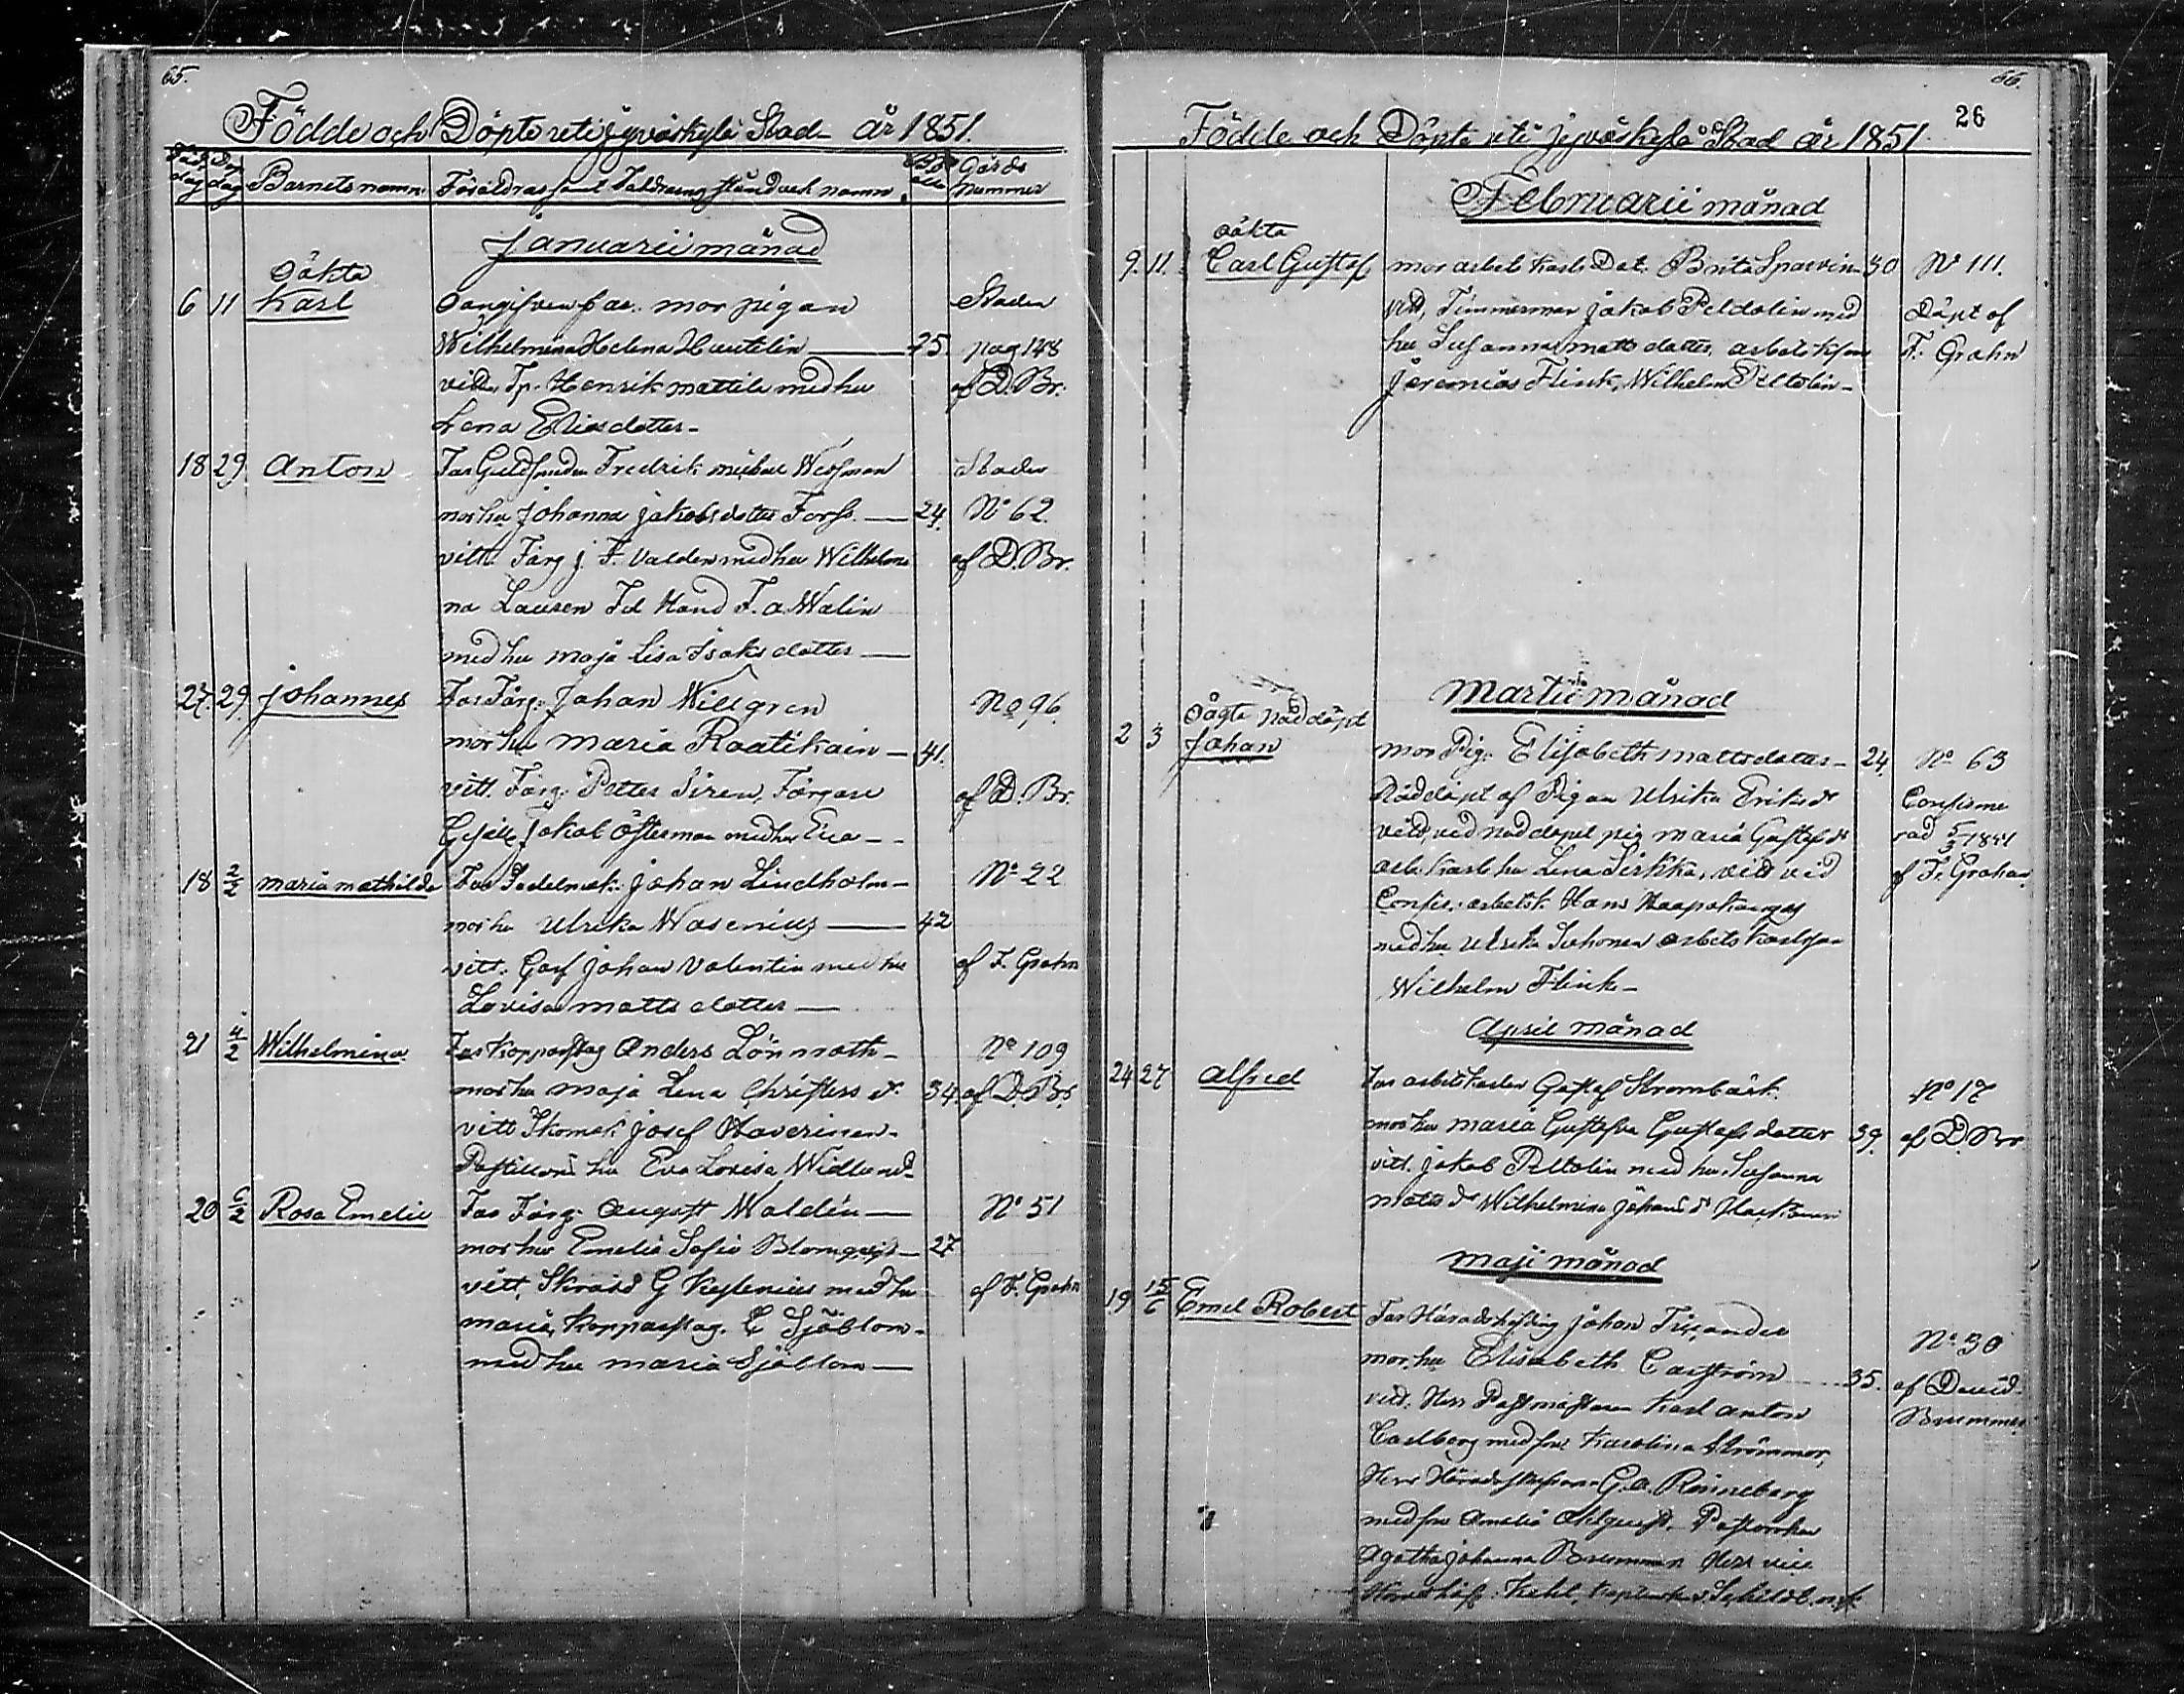 65.
Födde och Döpte uti Jyväskylä Stad år 1851.
Född dag
Dop dag
Barnets namn.
Föräldras samt Faddrarnes stånd och namn.
Gårds Nummer
Januarii månad
Oäkta
6 11 Karl Oangifven far. mor pigan Staden
Wilhelmina Helena Hautelin 25. pag 148
vittn. Tp. Henrik Mattila med hu af D. Br.
Lena Eliasdotter
18 29. Anton Far Guldsmeden Fredrik Mikael Wessman Staden
mor hu Johanna Jakobsdotter Forss. 24. No 62.
vittn. Färg J. F. Valden med hu Wilhelmi af D. Br.
na Lauren Fd Hand F. A. Walin
med hu Maja Lisa Isaksdotter
27. 29. Johannes Far Färg. Johan Willgren No 96.
mor hu Maria Raatikain 41.
vitt. Färg. Petter Siren, Färgare af D. Br.
Gesäll Jakob Österman med hu Eva
18 2/2 Maria Mathilda Far Sadelmak. Johan Lindholm No 22
mor hu Ulrika Wasenius 42
vitt. Garf Johan Valentin med hu af F. Grahn
Lovisa Mattsdotter
21 4/2 Wilhelmina Far Kopparslag Anders Lönnroth No 109
mor hu Maja Lena Christers dr. 34. af D. Br.
vitt Skomak Josef Haverinen
Postillons hu Eva Lovisa Widlund
20 6/2 Rosa Emelie Far Färg. August Waldén No 51
mor hu Emelie Sofie Blomqvist 27
vitt. Skrädd G Keflenius med hu af F. Grahn
Maria, Kopparslag. C Sjöblom
med hu Maria Sjöblom
66.
26
Födde och Döpte uti Jyväskylä Stad år 1851.
Februarii månad
oäkta
9. 11. Carl Gustaf mor arbets karls Dot. Brita Sparvin 30 No 111.
vitt. Timmerman Jakob Peldolin med Döpt af
hu Susanna Matts dotter, arbets karlen F. Grahn
Jeremias Flink, Wilhelm Peltolin
Martii månad
Oägta Nöddöpt
2 3 Johan mor Pig. Elisabeth Mattsdotter 24. No 63
Nöddöpt af Pigan Ulrika Eriksdr Confirme
vittn. vid nöddopet pig Maria Gustafsdr rad 5/3 1851
arb. karls hu Lena Sirkka, vitt vid af F. Grahn
Confir. arbetsk. Hans Haapakangas
med hu Ulrika Suhonen arbets karlen
Wilhelm Flink
April månad
24 27 Alfred Far arbetskarlen Gustaf Strömbäck. No 17
mor hu Maria Gustafva Gustafsdotter 39. af D. Br
vitt. Jakob Peltolin med hu Susanna
Matts dr Wilhelmina Johans dr
Maji månad
19 15/6 Emil Robert Far Häradshöfding Johan No 30
mor hu Elisabeth Castrén 35. af David
vitt. Herr Postmästaren Karl Anton Brummer
Carlberg med fru Karolina Strömmer,
Herr Häradsskrifvaren G. A. Rönneberg
med fru Amalia Ahlqvist, Pastorskan
Agatha Johanna Brummer Herr vice
Häradshöf.